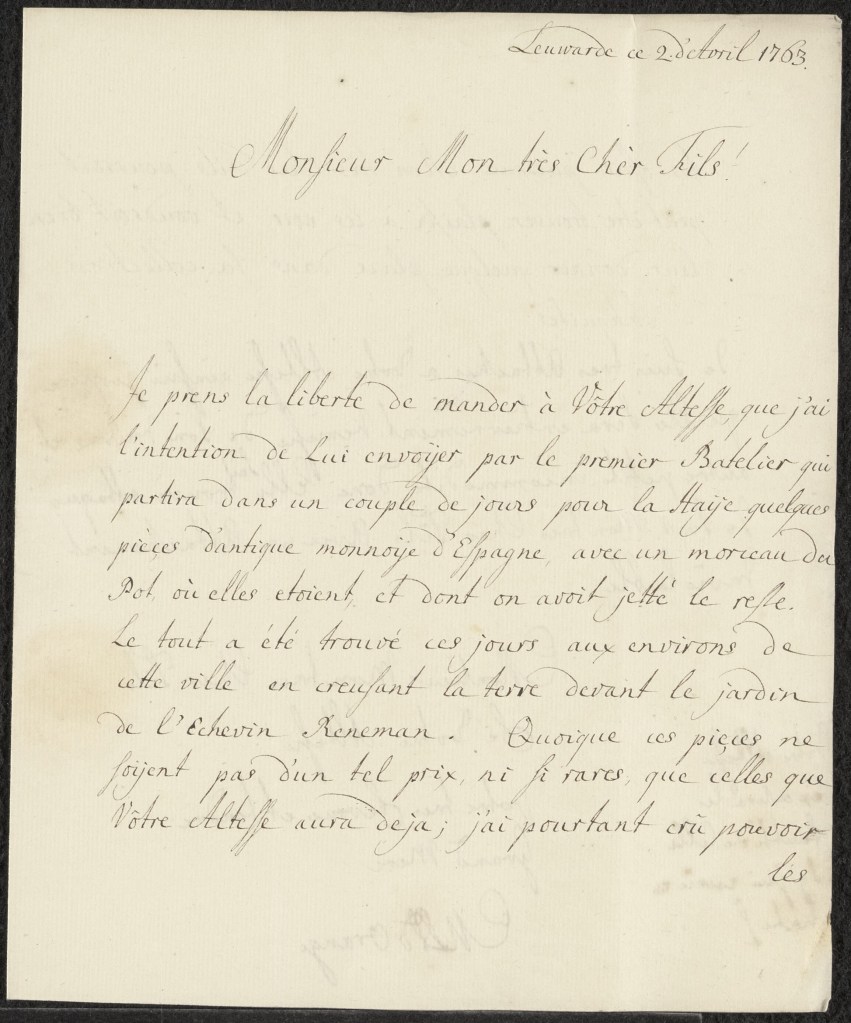 Leuwarde ce 2. d'Avril 1763.
Monsieur Mon très Chèr Fils!
Je prens la liberte de mander à Vôtre Altesse, que j'ai
l'intention de Lui envoÿer par le premier Batelier qui
partira dans un couple de jours pour la Haÿe quelques
pièces d'antique monnoÿe d'Espagne, avec un morceau du
Pot, où elles etoient, et dont on avoit jetté le reste.
Le tout a été trouvé ces jours aux environs de
cette ville en creusant la terre devant le jardin
de l'Echevin Reneman. Quoique ces pièces ne
soÿent pas d'un tel prix, ni si rares, que celles que
Vôtre Altesse aura deja; j'ai pourtant crû pouvoir
les